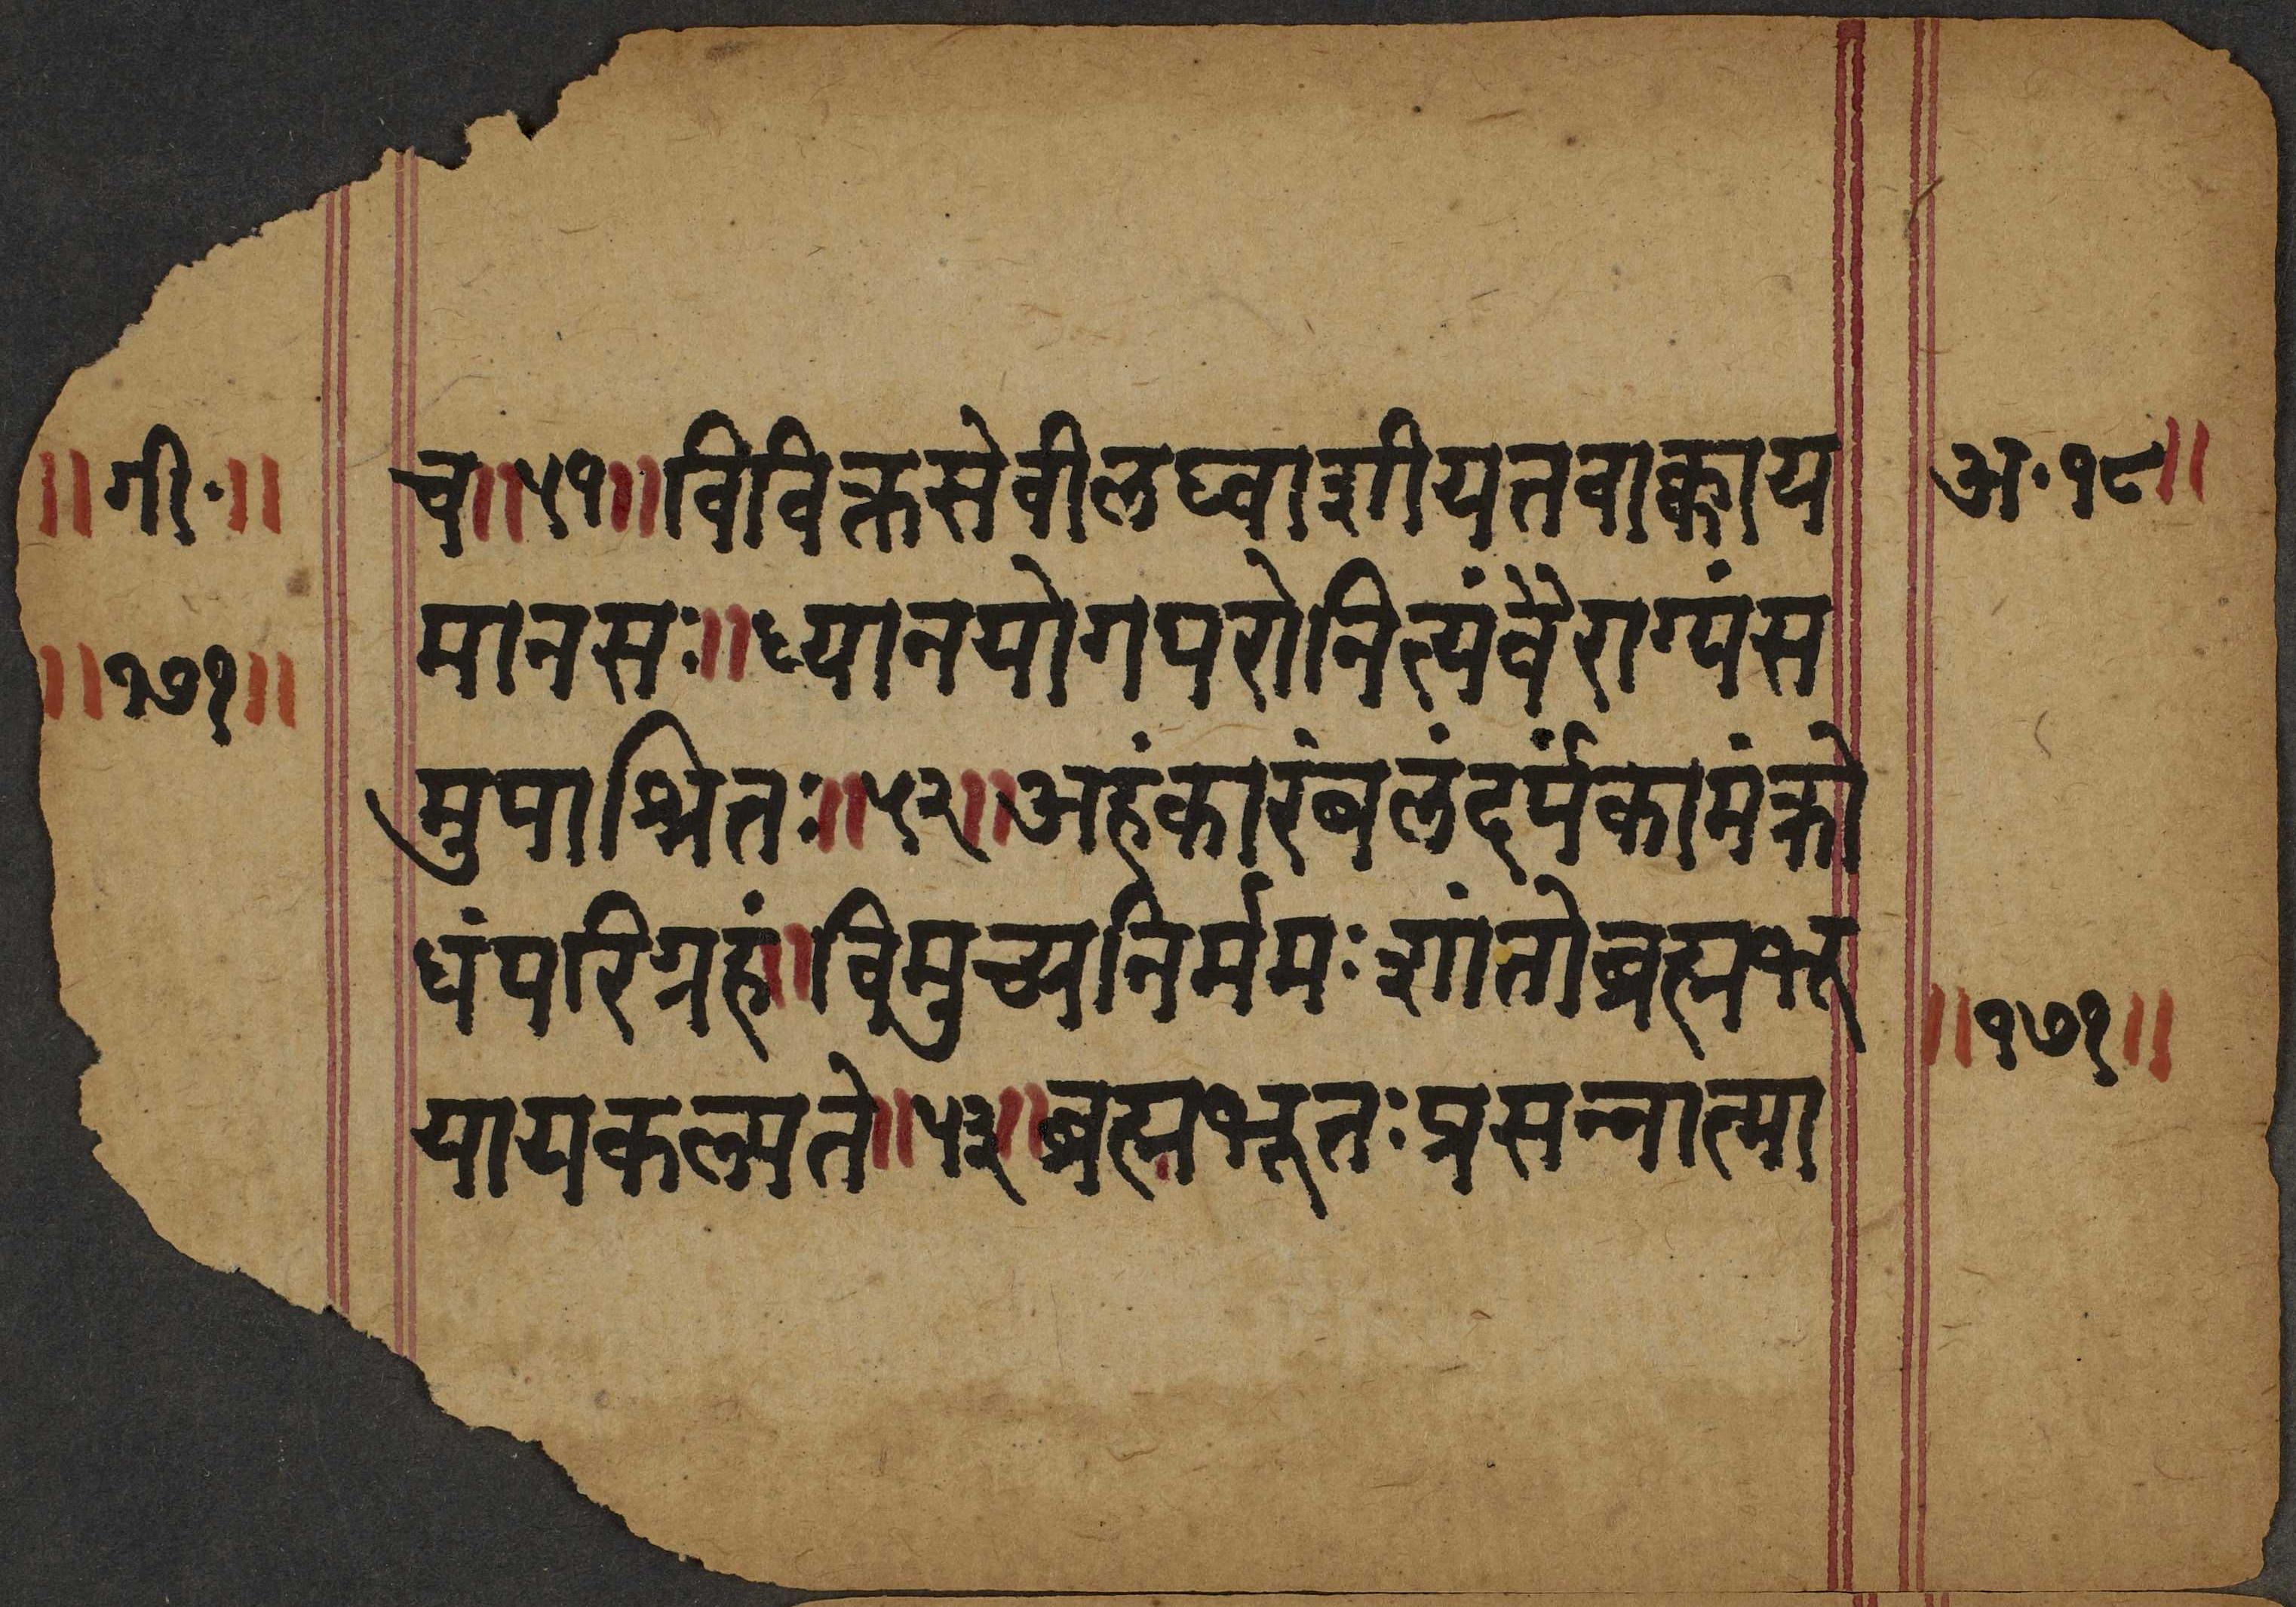 ॥गी॰॥
च॥५१॥विविक्तसेवीलघ्वाशीयतवाक्काय
अ॰१८॥
मानसः॥ध्यानयोगपरोनित्यंवैराग्यंस
॥१७१॥
मुपाश्रितः॥५२॥अहंकारंबलंदर्पंकामंक्रो
धंपरिग्रहं॥विमुच्यनिर्ममःशांतोब्रह्मभू
॥१७१॥
यायकल्पते॥५३॥ब्रह्मभूतःप्रसन्नात्मा